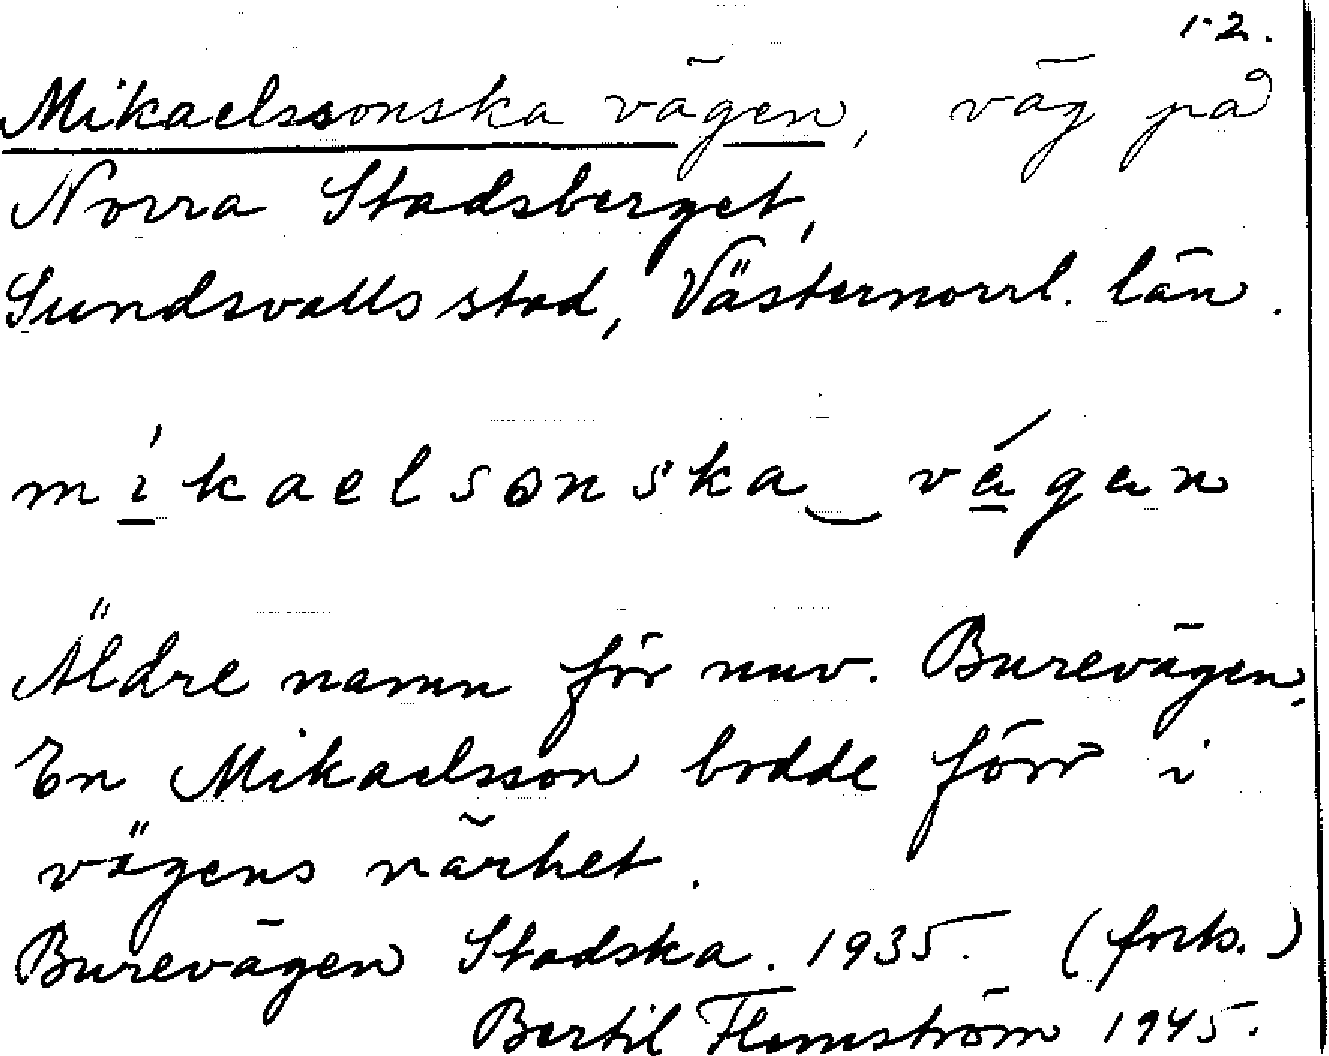 1-2.
Mikaelssonska vägen, väg på
Norra Stadsberget,
Sundsvalls stad, Västernorrl. län.
mí̱kaelsonska‿vá̱gan
Äldre namn för nuv. Burevägen.
En Mikaelsson bodde förr i
vägens närhet.
Burevägen Stadska. 1935. (forts.)
Bertil Flemström 1945.